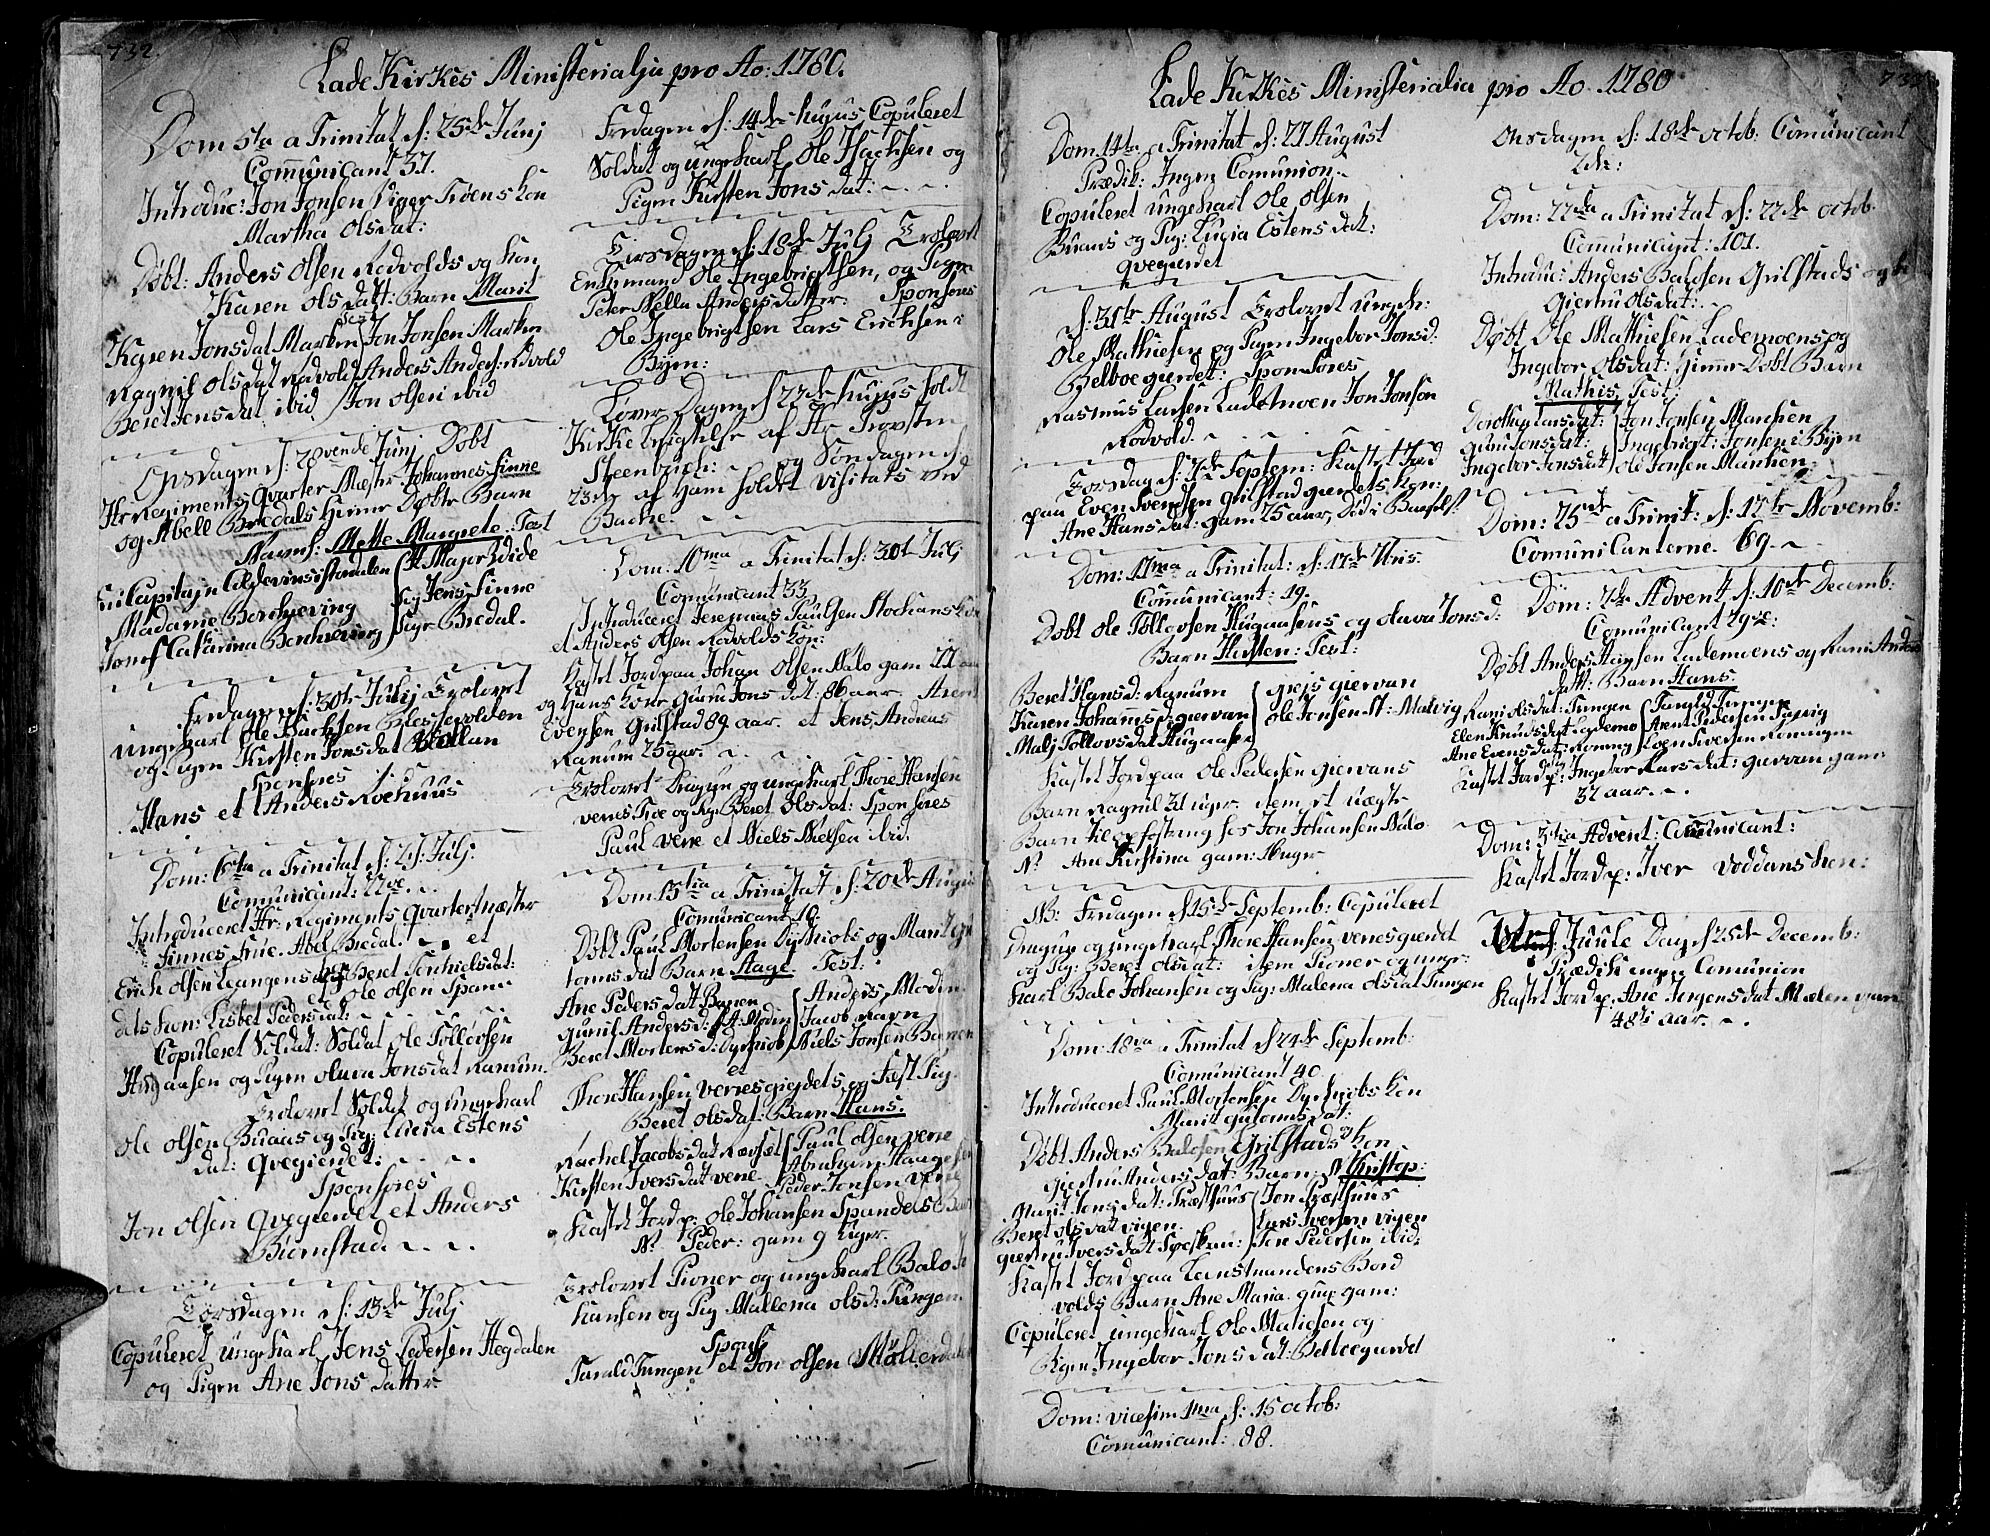 732.
Lade Kirkes Ministerialia pro Ao: 1780.
Dom 5ta a Trinitat d: 25de Junj
Communicant 37.
Introduc: Jon Jonsen Viger Trøens Kon
Martha Olsdat:
Døbt: Anders Olsen Rodvolds og Kon
Karen Olsdatt: Barn Marit
Karen Jonsdat Marken Jon Jonsen Marken
Ragnil Olsdat Rodvold Anders Anders: Rodvold
Beret Jensdat ibid Jon Olsen ibid
Onsdagen d: 28vende Junj Døbt
Hr Regiments Qvarter Mæster Johannes Finne
og Abell Bredals Hiemme Døbte Barn
Nafnf: Mette Margrete. Test
Madame Borchgreving
Sr Jens Finne
Jomf Catarina Borchgreving Sigr Bredal.
Fredagen d: 30te Junij Trolovet
ungekarl Ole Isachsen
og Pigen Kirsten Jonsdat
Sponsores
Hans et Anders Rochuus
Dom: 6ta a Trinitat d: 2d Julj:
Communicant: 22ve.
Introduceret Hr: Regiments Qvartermæster
Finnes Frue. Abel Bredal. et
Erich Olsen Leangens Beret Torkielsdat:
et Ole Olsen Spann
dals Kon: Lisbet Pedersdat:
Copuleret Soldat: Soldat Ole Tollevsen
Haugaansen og Pigen Oluva Jonsdat Ranum.
Trolovet Soldat og ungekarl
Ole Olsen Buaas og Pig: Lucia Estens
dat: Qvegierdet:
Sponsores
Jon Olsen Qvegierdet et Anders
Biørnstad.
Torsdagen d: 13de Julj
Copuleret ungekarl Jens Pedersen Hegdalen
og Pigen Ane Jons datter
Fredagen d: 14de hujus Copuleret
Soldat og ungekarl Ole Isachsen og
Pigen Kirsten Jons dat:
Tirsdagen d: 18de Julj Trolovet
Enkemand Ole Ingebrigtsen, og Pigen
Peternella Andersdatter: Sponsores
Ole Ingebrigtsen Lars Erichsen i
Byen:
Løver Dagen d 22de hujus holdt
Kirke besigtelse af Hr Provsten
Steenbuch: og Søndagen d
23de af ham holdt Visitats ved
Bache.
Dom: 10ma a Trinitat d: 30t Julj
Communicant 33
Introduceret Jeremias Paulsen Stochans Kon
et Anders Olsen Rodvolds Kon:
Kastet Jord paa Johan Olsen Dalo gam 77 aar
og Hans Kone Guru Jons dat: 86 aar. Arent
Evensen Grilstad 89 aar. et Jens Andreas
Ranum 25 aar.
Trolovet Dragun og ungekarl Thore Hansen
veres Træ og Pig: Beret Olsdat: Sponsores
Paul Vere et Niels Nielsen ibid.
Dom 13tia a Trinitat d: 20de Augu
Communicant 16.
Døbt Paul Mortensen Dyrhiobs og Marit Gu
tormsdat Barn Aage. Test:
Ane Peders dat Banen Anders Modin
Gunil Andersd: St: Modin Jacob Ravn
Beret Mortensd: Dyrhiob Niels Jonsen Banen
et
Thore Hansen Verresgierdets og Fæst Pig
Beret Olsdat: Barn Hans.
Rachel Jacobs dat Rævset Paul Olsen Vere
Kirsten Ivers dat Vere Peder Jonsen Vere
Kastet Jord p: Ole Johansen Spandets Bar
N: Peder: gam 9 Uger.
Trolovet Pioner og ungekarl Balo Jo
hansen og Pig Mallena Olsd: Tungen
Spons
Tarald Tungen et Jon Olsen Møllerdal
Lade Kirkes Ministerialia pro Ao. 1780
Dom 14ta a Trinitat d: 27 August
Prædik: Ingen Comunion
Copuleret ungekarl Ole Olsen
Buaas og Pig: Lucia Estens dat:
Qvegierdet
d: 31te August Trolovet Ungk:
Ole Mathiesen og Pigen Ingebor Jonsd:
Belboe gierdet: Sponsores
Rasmus Larsen Lademoen Jon Jonsen
Rodvold.
Torsdag d: 7de Septem: Kastet Jord
paa Even Svendsen Grilstad gierdets Kon:
Ane Hansdat: gam 25 aar, Død i Barsels
Dom: 17ma a Trinitat: d: 17de 7bris.
Communicant: 19.
Døbt Ole Tollovsen Hugaasens og Oluva Jonsd:
Barn Kirsten: Test:
Beret Hansd: Ranum Grejs Giervan
Karen Johannsd: Giervan Ole Jonsen St: Malvig
Malj Tollovsdat Hugaasen
Kastet Jord paa Ole Pedersen Giervans
Barn Ragnil 31 uger. item et uægte
Barn til opfostring hos Jon Johansen Dalo
N: Ane Kirstina gam: 16 uger
NB: Fredagen d 15de Septemb: Copuleret
Dragun og ungekarl Thore Hansen Veresgierdet
og Pig: Beret Olsdat: item Pioner og unge:
Karl Balo Johansen og Pig: Malena Olsdat Tungen
Dom: 18va a Trinitat d 24de Septemb:
Communicant 40
Introduceret Paul Mortensen Dyrhiobs Kon
Marit Gutorms dat:
Døbt Anders Balosen Grilstads og Kon
Giertru Andersdat: Barn: N Kristop:
Marit Jons dat: Præsthuus Jon Præsthuus
Beret Olsdat Vigen. Lars Iversen Vigen
Giertru Ivers dat Tore Pedersen ibid:
Kastet Jord paa Leensmandens Bord
volds Barn Ane Maria.
Copuleret ungekarl Ole Matiesen og
Pigen Ingebor Jons dat: Belboegierdet
Dom: vicesim 1ma d: 15 Octob:
Communicant: 88.
Onsdagen d: 18de Octob. Comunicant
2de:
Dom: 22da a Trinitat d: 22de Octob.
Communicant: 101.
Introduc: Anders Balosen Grilstads og
Giertru Olsdat:
Døbt Ole Mathiesen Lademoens og
Ingebor Olsdat: Hiemme Døbt Barn
Mathis. Test:
Dorothea Larsdat: Jon Jonsen Marchen
Guru Jonsdat: Ingebrigt: Jonsen i Byen
Ingebor Jonsdat Ole Jonsen Marchen
Dom: 25de a Trinit: d: 12te Novemb:
Communicanterne. 69.
Dom: 2de Advent d: 10de Decemb:
Communicant 29ve:
Døbt Anders Hansen Lademoens og Rani Anders
datt: Barn Hans.
Rani Olsdat: Tungen Tarald Tungen
Elen Knudsdat Lademo Arent Pedersen
Ane Evensdat: Roning Loen Iversen Roningen
Kastet Jord p: Ingebor Larsdat: Giervan gam:
32 aar.
Dom: 3tia Advent: Communicant:
Kastet Jord p: Iver Voddans Kon:
Juule Dag d 25de Decemb:
Prædik ingen Comunion
Kastet Jord p. Ane Jørgensdat Mælen gam
48 aar.